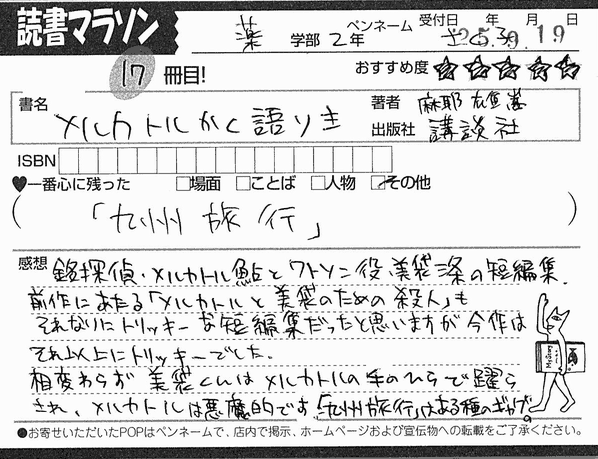 読書マラソン
薬 学部 2年
ペンネーム さくみ
受付日 年 月 日
25.9.19
17 冊目!
おすすめ度 ☆☆☆☆☆
書名 メルカトルかく語りき
著者 麻耶雄嵩
出版社 講談社
ISBN
♥一番心に残った □場面 □ことば □人物 ☑その他
(「九州旅行」)
感想 銘探偵・メルカトル鮎とワトソン役・美袋三条の短編集.
前作にあたる「メルカトルと美袋のための殺人」も
それなりにトリッキーな短編集だったと思いますが今作は
それ以上にトリッキーでした.
相変わらず美袋くんはメルカトルの手のひらで躍ら
され、メルカトルは悪魔的です「九州旅行」はある種のギャグ。
●お寄せいただいたPOPはペンネームで、店内で掲示、ホームページおよび宣伝物への転載をご了承ください。